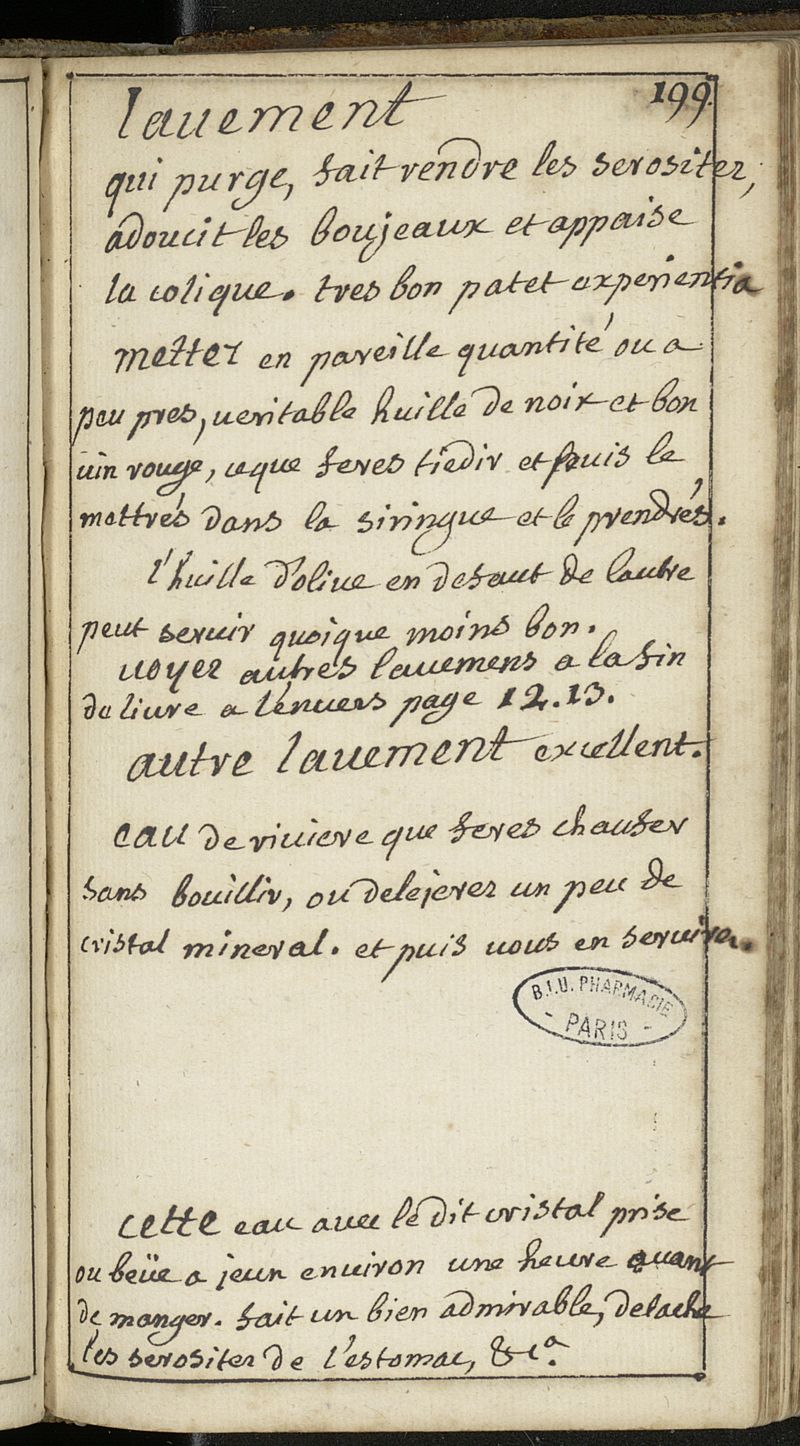 199.
lauement
qui purge, fait rendre les serositez,
adoucit les boujeaux et appaise
la colique. tres bon patet experientia
mettez en pareille quantité ou a
peu pres, veritable huille de noix et bon
uin rouge, ce que feres tiedir et puis le
mettrés dans la siringue et le prendrés.
l'huille d'oliue en defaut de l'autre
peut seruir quoique moins bon.
uoyez autres lauemens a la fin
du liure a l'enuers page 12.13.
autre lauement excellent.
eau de riuiere que feres chaufer
sans bouillir, ou delejerez un peu de
cristal mineral. et puis uous en seruirez.
B.I.U. PHARMACIE
- PARIS -
cette eau auec le dit cristal prise
ou beüe a jeun enuiron une heure auant
de manger. fait un bien admirable, detache
les serositez de l'estomac, &ca.